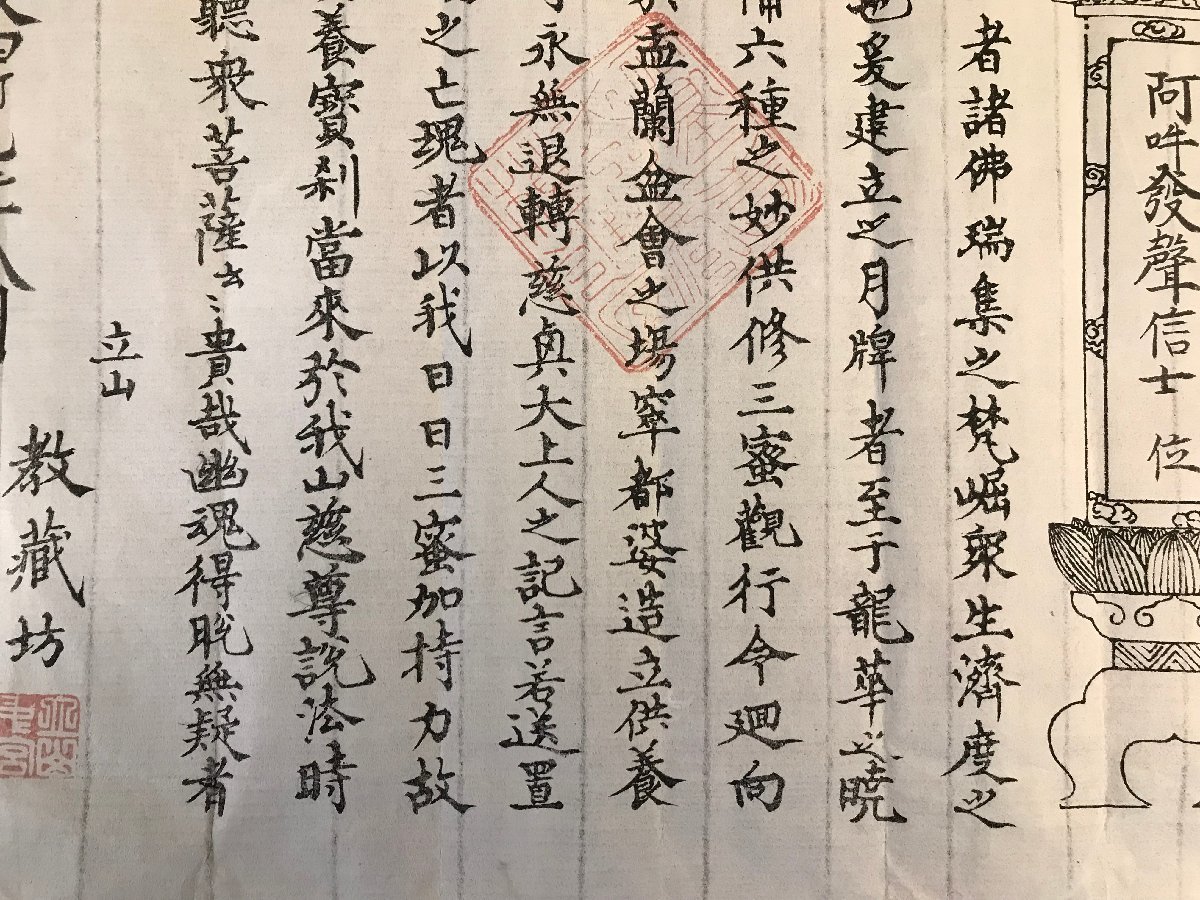 阿吽發聲信士 位
者諸佛瑞集之梵崛衆生濟度之
爰建立之月牌者至于龍華之曉
六種之妙供修三蜜觀行令廻向
盂蘭盆會之場窣都婆造立供養
永無退轉慈眞大上人之記言若送置
之亡魂者以我日日三蜜加持力故
養寳刹當來於我山慈尊説法時
聽衆菩薩云〻貴哉幽魂得脱無疑者
立山
教藏坊